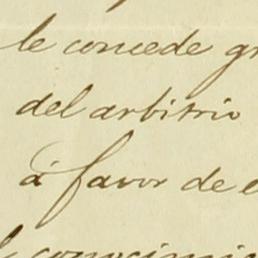 le concede gr
del arbitrio
á favor de e
conocimie